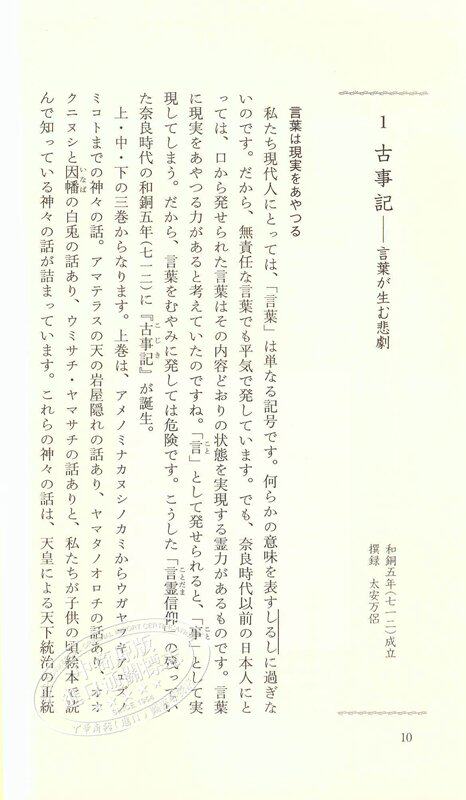 1 古事記――言葉が生む悲劇
和銅五年(七一二)成立
撰録 太安万侶
言葉は現実をあやつる
私たち現代人にとっては、「言葉」は単なる記号です。何らかの意味を表すしるしに過ぎな
いのです。だから、無責任な言葉でも平気で発しています。でも、奈良時代以前の日本人にと
っては、口から発せられた言葉はその内容どおりの状態を実現する霊力があるものです。言葉
に現実をあやつる力があると考えていたのですね。「言」として発せられると、「事」として実
現してしまう。だから、言葉をむやみに発しては危険です。こうした「言霊信仰」の残ってい
た奈良時代の和銅五年(七一二)に『古事記』が誕生。
上・中・下の三巻からなります。上巻は、アメノミナカヌシノカミからウガヤフキアエズノ
ミコトまでの神々の話。アマテラスの天の岩屋隠れの話あり、ヤマタノオロチの話あり、オホ
クニヌシと因幡の白兎の話あり、ウミサチ・ヤマサチの話ありと、私たちが子供の頃絵本で読
んで知っている神々の話が詰まっています。これらの神々の話は、天皇による天下統治の正統
10